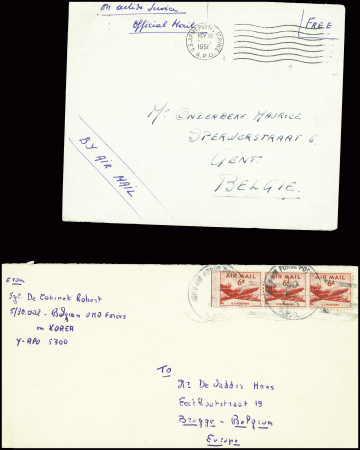 on active service
Official Mail
FREE
U.S. ARMY
NOV
1951
A.P.O.
BY AIR MAIL
Mr ONDERBEKE MAURICE
SPERWERSTRAAT 6
GENT.
BELGIE.
AIR MAIL
6¢
U.S. POSTAGE
AIR MAIL
6¢
AIR MAIL
6¢
U.S. POSTAGE
AIR FORCE
FROM
Sgt. De Robert
5/30.002 - Belgian UNO Forces
in KOREA
Y-APO 5700
TO
Mr De Hans
19
Brugge - Belgium
Europe